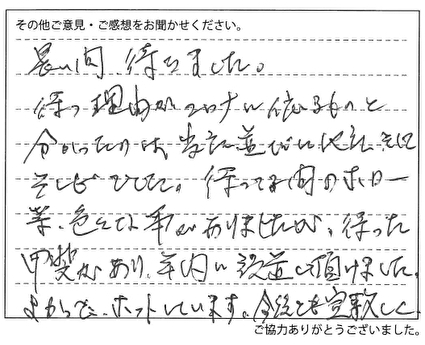 その他ご意見・ご感想をお聞かせください。
長い間、待ちました。
待つ理由がコロナに依るものと
分かったのは、当社並びに他社、そして
でした。待ってる間のフォロー
等、色々な事がありましたが、待った
甲斐があり、年内に設置して頂けました。
よかったで、ホットしています。今後とも宜敷しく
ご協力ありがとうございました。